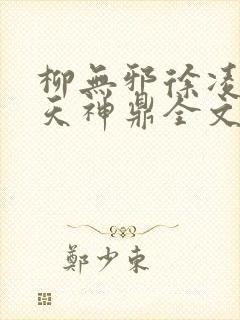 柳無邪徐凌
天神鼎全文
鄭少東